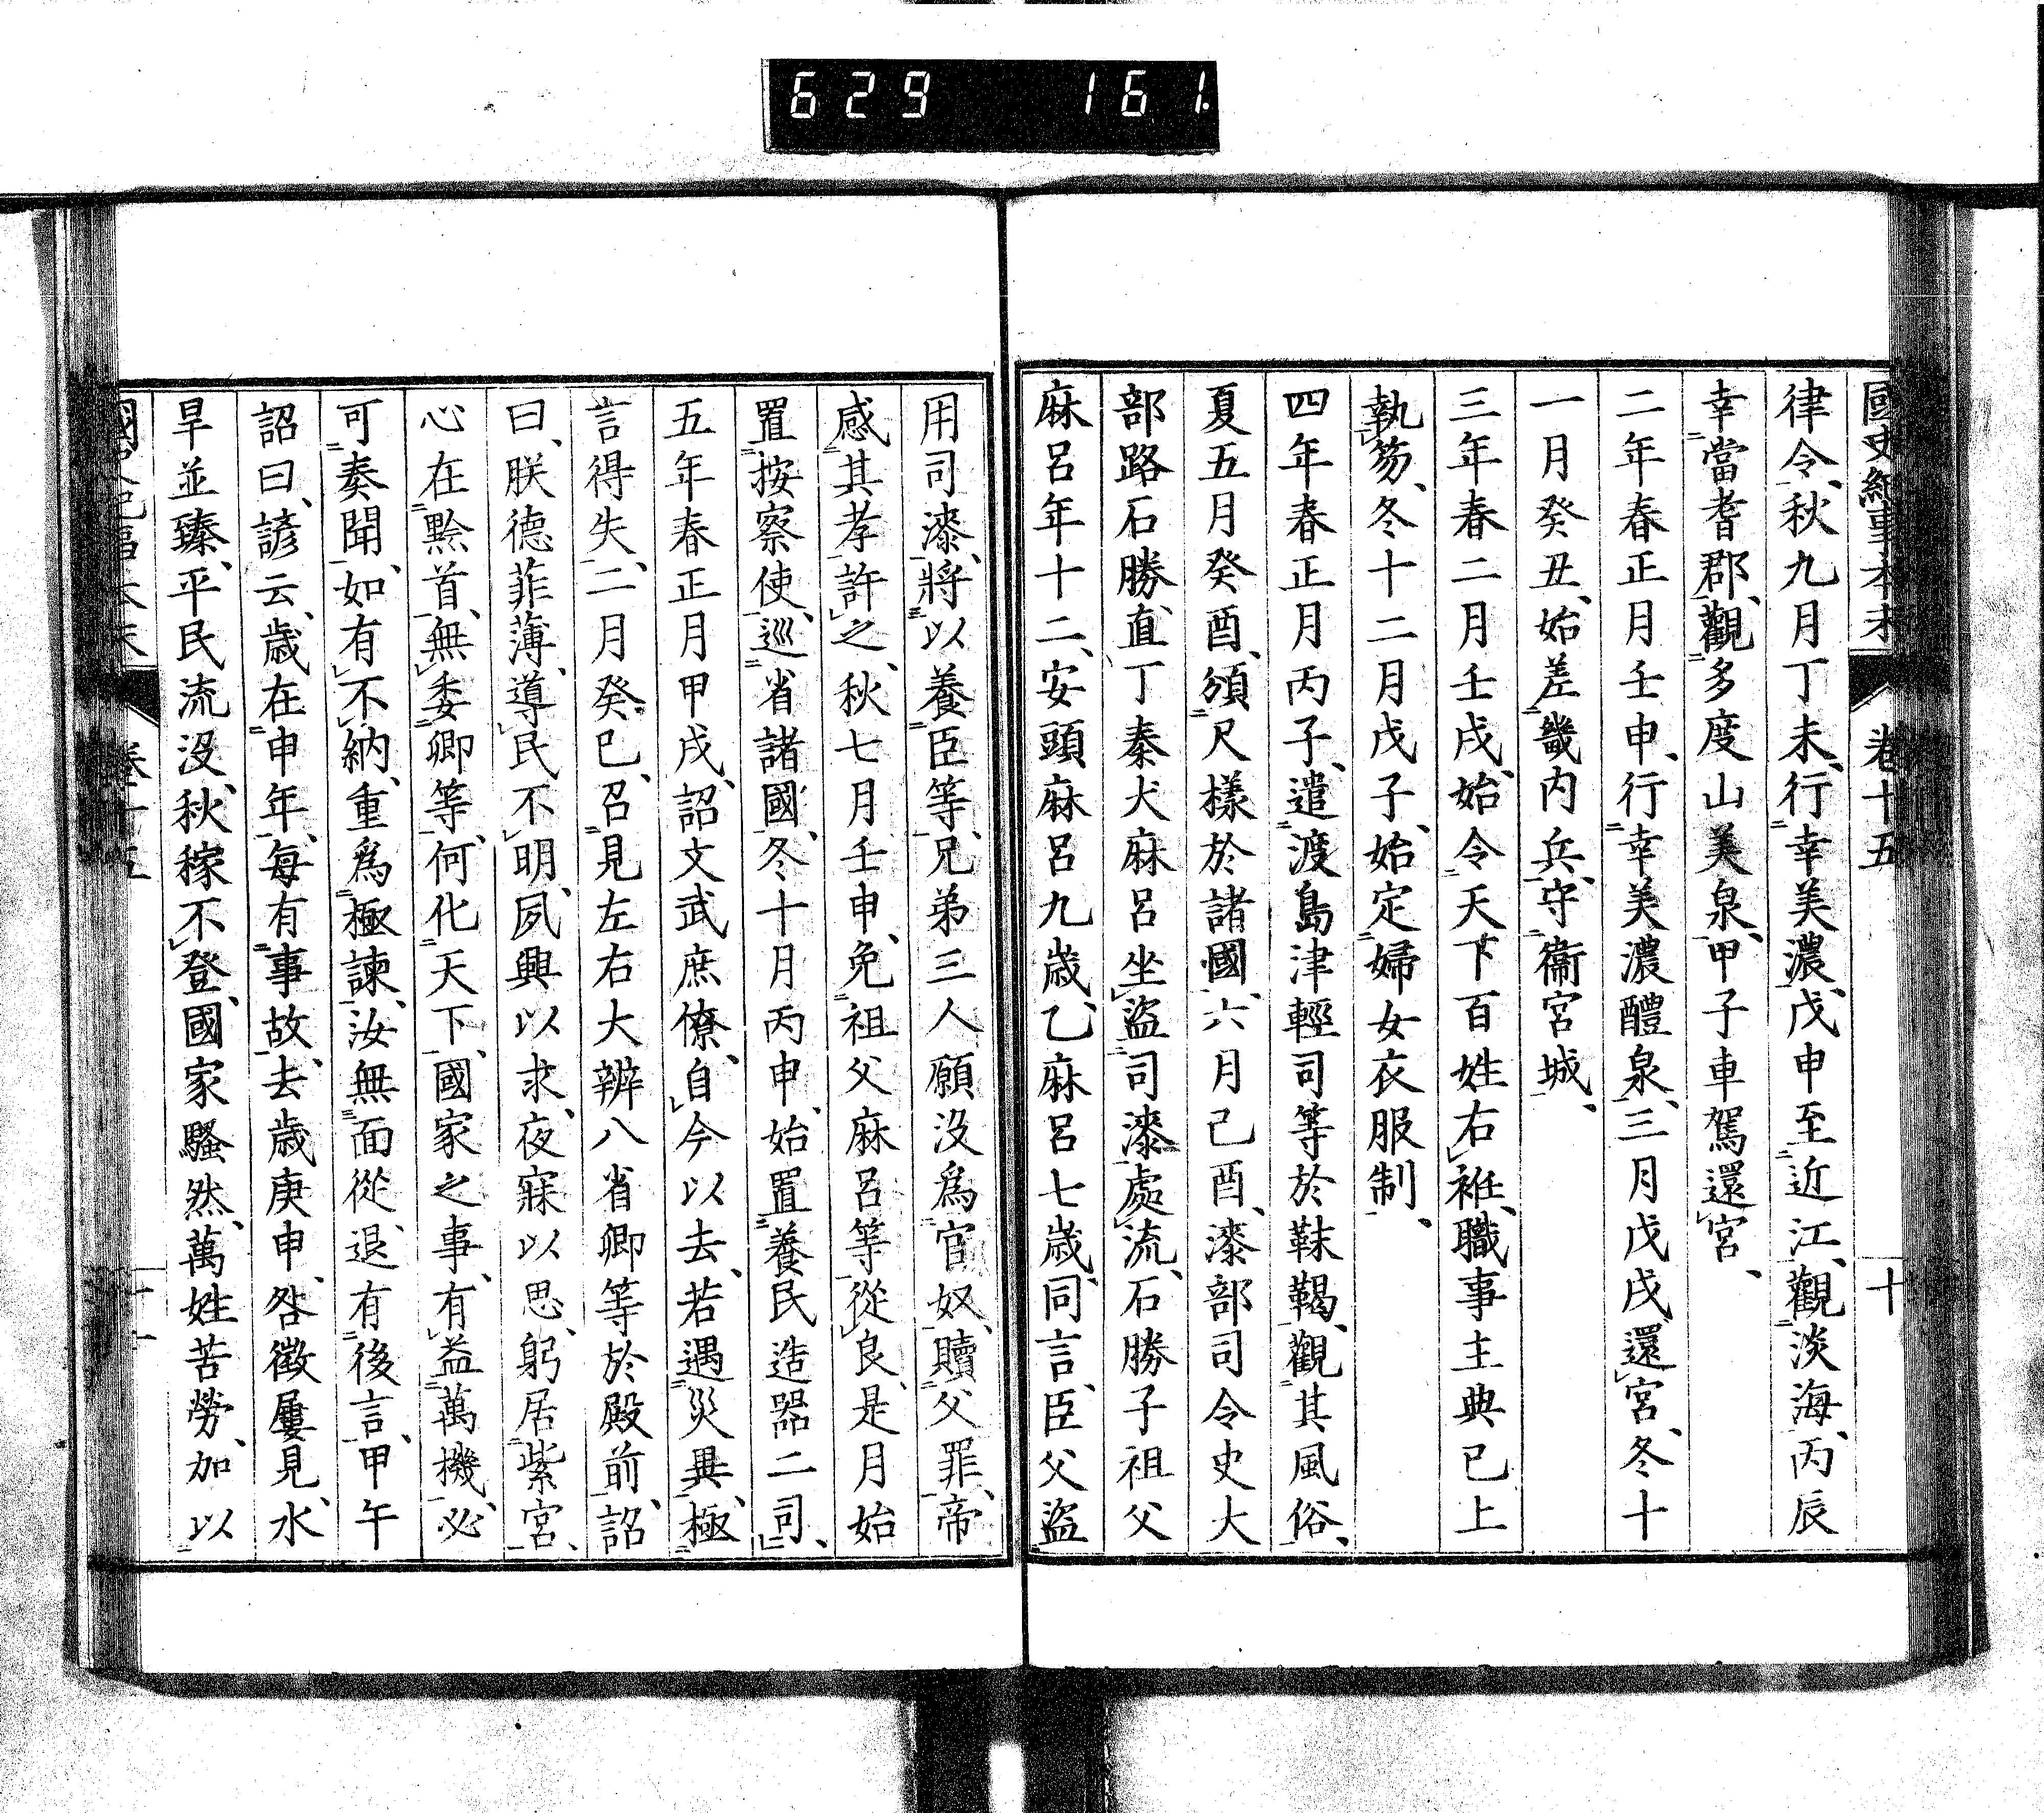 629 161.
國史紀事本末 卷十五 十
律令、秋九月丁未、行幸美濃、戊申至近江、觀淡海、丙辰
幸當耆郡、觀多度山美泉、甲子車駕還宮、
二年春正月壬申、行幸美濃醴泉、三月戊戌、還宮、冬十
一月癸丑、始差畿内兵、守衞宮城、
三年春二月壬戌、始令天下百姓右袵、職事主典已上
執笏、冬十二月戊子、始定婦女衣服制、
四年春正月丙子、遣渡島津輕司等於靺鞨、觀其風俗、
夏五月癸酉、頒尺樣於諸國、六月己酉、漆部司令史大
部路石勝、直丁秦犬麻呂坐盜司漆處流、石勝子祖父
麻呂年十二、安頭麻呂九歲、乙麻呂七歲、同言、臣父盜
用司漆、將以養臣等、兄弟三人願沒爲官奴、贖父罪、帝
感其孝、許之、秋七月壬申、免祖父麻呂等從良、是月始
置按察使、巡省諸國、冬十月丙申、始置養民造器二司、
五年春正月甲戌、詔文武庶僚、自今以去、若遇災異、極
言得失、二月癸巳、召見左右大辨八省卿等於殿前、詔
曰、朕德菲薄、導民不明、夙興以求、夜寐以思、躬居紫宮、
心在黔首、無委卿等、何化天下、國家之事、有益萬機、必
可奏聞、如有不納、重爲極諫、汝無面從、退有後言、甲午
詔曰、諺云、歲在申年、每有事故、去歲庚申、咎徵屢見、水
旱並臻、平民流沒、秋稼不登、國家騷然、萬姓苦勞、加以